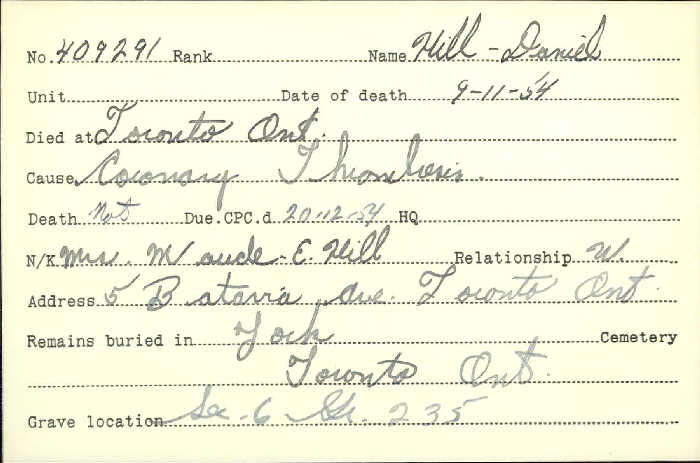 No. 409291 Rank Name Hill - Daniel
Unit Date of death 9-11-54
Died at Toronto Ont.
Cause Coronary Thrombosis.
Death Not Due. CPC.d. 20-12-54 HQ
N/K Mrs. Maude. E. Hill Relationship W.
Address 5 Batavia Ave. Toronto Ont.
Remains buried in York Cemetery
Toronto Ont.
Grave location Sec. 6 Gr. 235